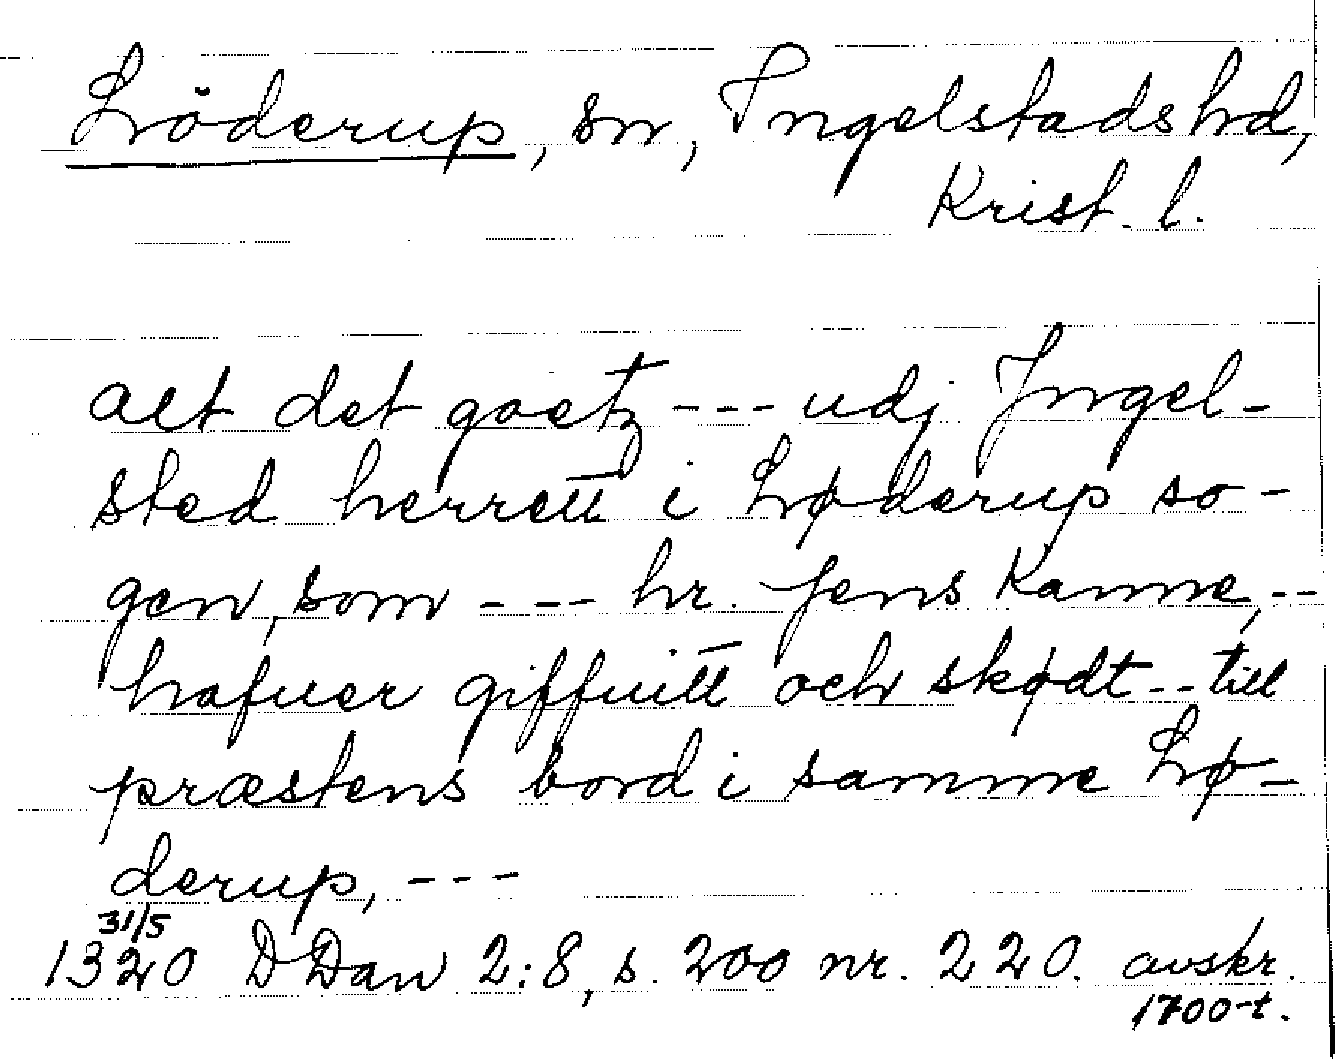 Löderup, sn, Ingelstads hd,
Krist. l.
alt det goetz --- udj Jngel-
sted herrett i Løderup so-
gen, som --- hr. Jens Kanne, --
hafuer giffuitt och skødt -- till
præstens bord i samme Lø-
derup, ---
31/5
1320 DDan 2:8, s. 200 nr. 220. avskr.
1700-t.